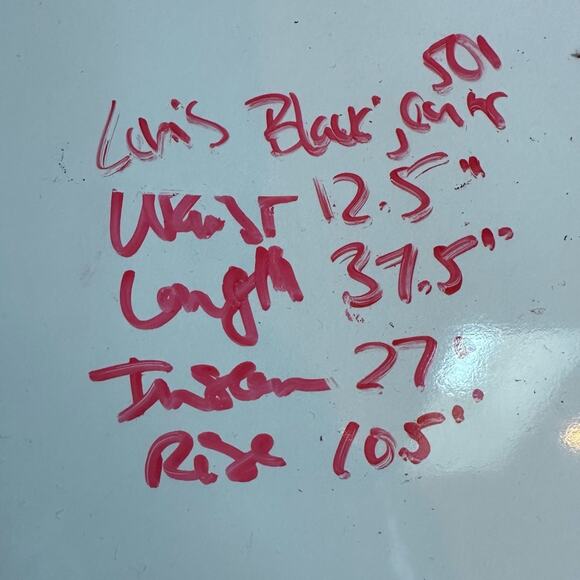 501
Levi's Black Jeans
Waist 12.5"
Length 37.5"
Inseam 27"
Rise 10.5"